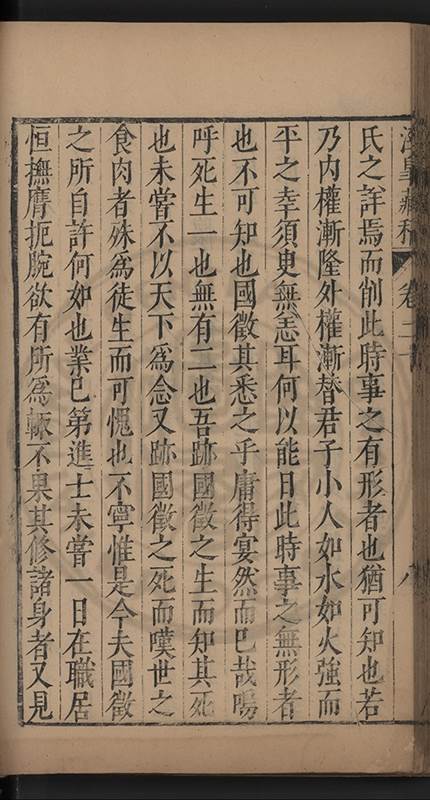 涇臯藏稿 卷二十 八
氏之詳焉而削此時事之有形者也猶可知也若
乃内權漸隆外權漸替君子小人如水如火強而
平之幸須臾無恙耳何以能日此時事之無形者
也不可知也國徵其悉之乎庸得宴然而已哉嗚
呼死生一也無有二也吾跡國徵之生而知其死
也未嘗不以天下爲念又跡國徵之死而嘆世之
食肉者殊爲徒生而可愧也不寧惟是今夫國徵
之所自許何如也業已第進士未嘗一日在職居
恒撫膺扼腕欲有所爲輒不果其修諸身者又見